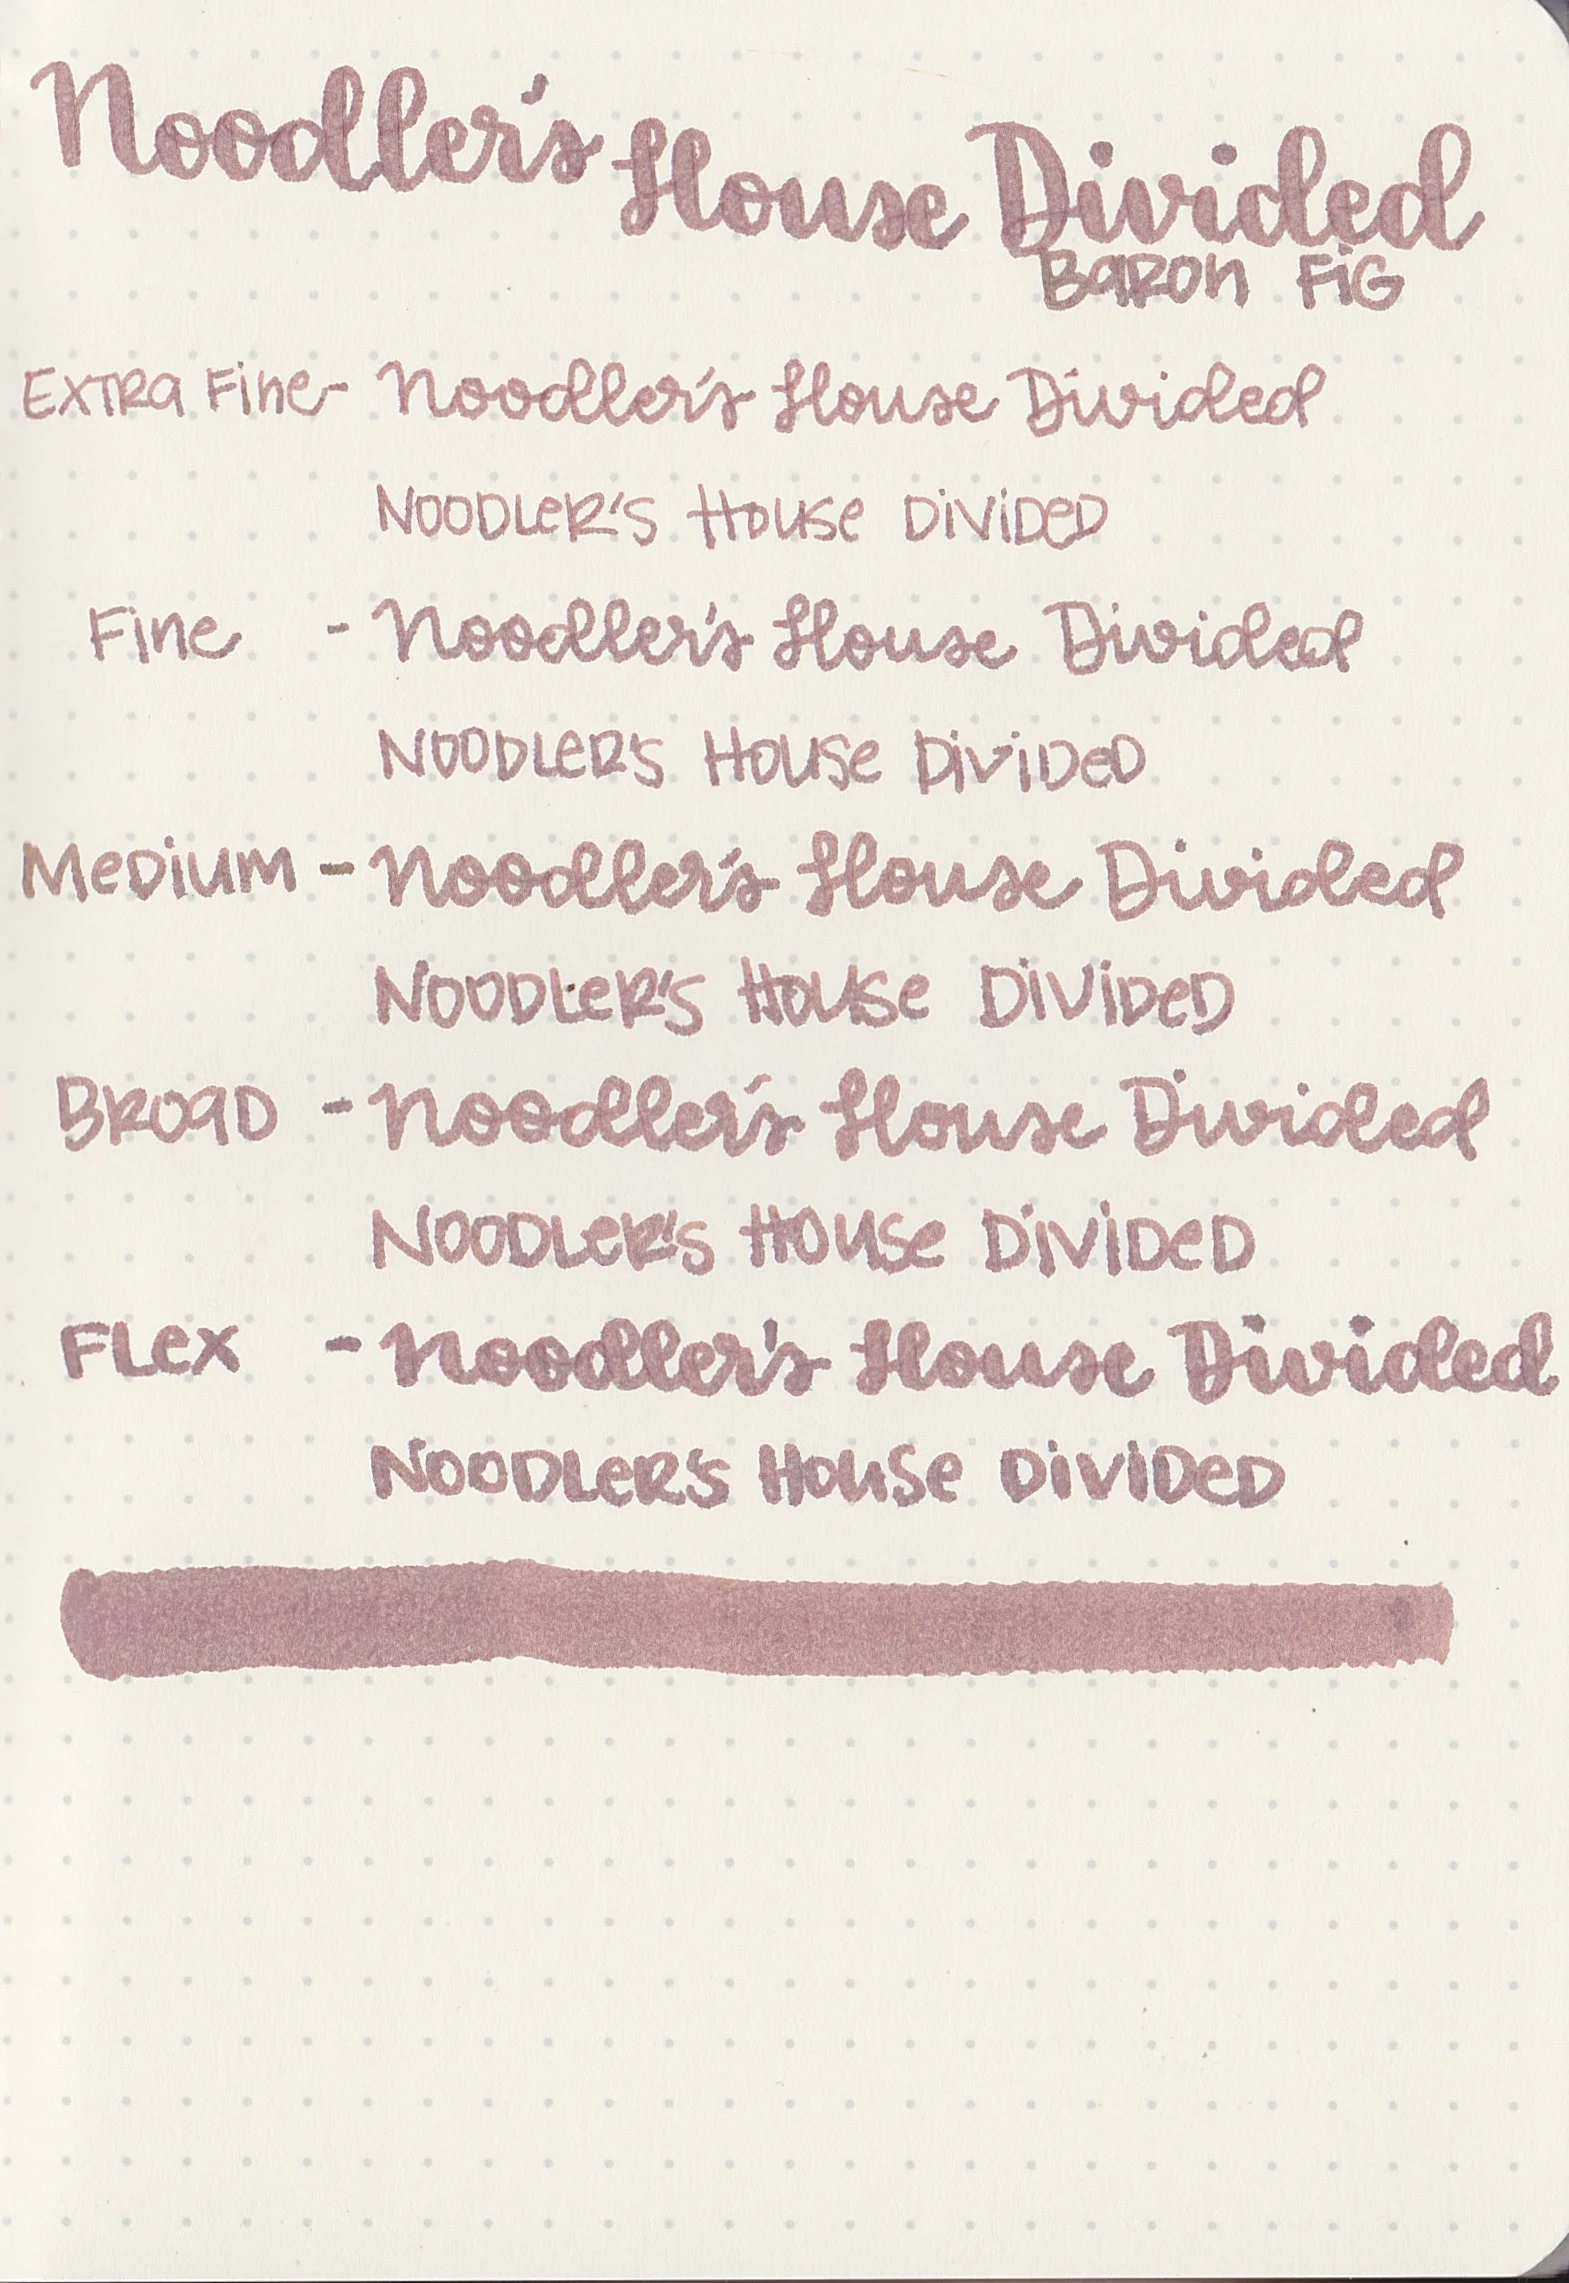 Noodler's House Divided
Baron Fig
Extra Fine - Noodler's House Divided
Noodler's House Divided
Fine - Noodler's House Divided
Noodler's House Divided
Medium - Noodler's House Divided
Noodler's House Divided
Broad - Noodler's House Divided
Noodler's House Divided
Flex - Noodler's House Divided
Noodler's House Divided